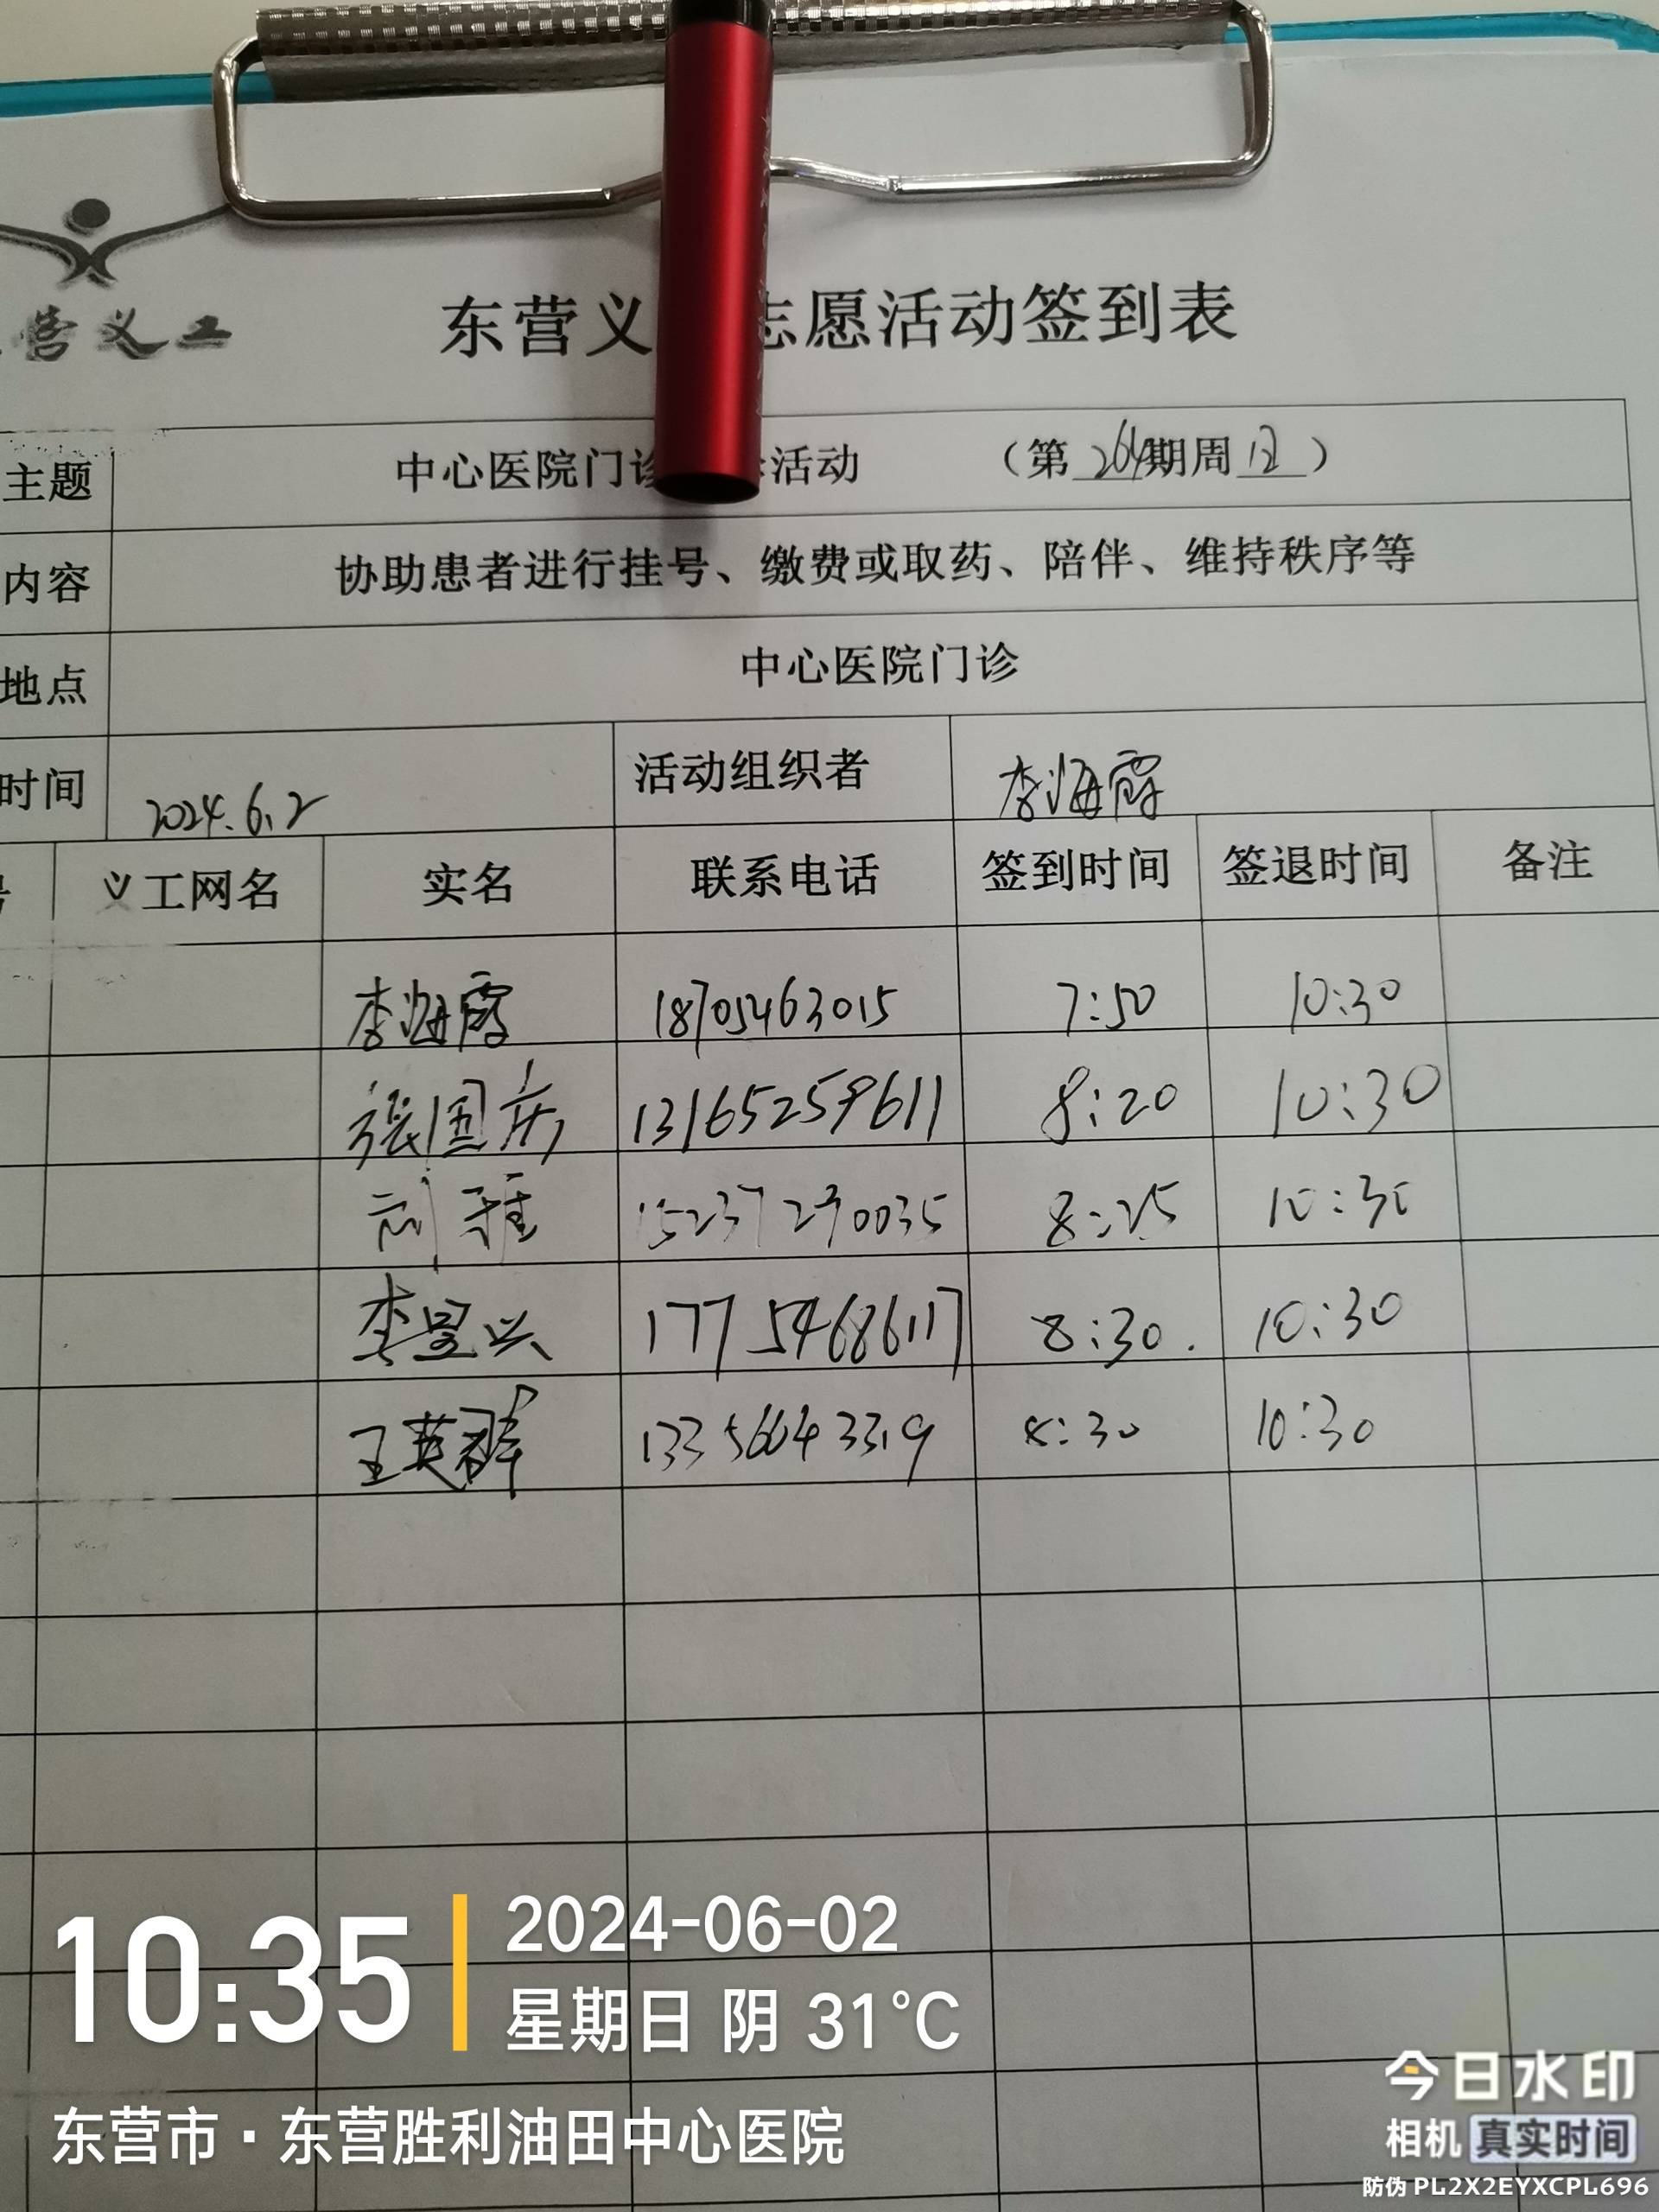 营义工
东营义 志愿活动签到表
主题 中心医院门诊 活动 (第 264期周日)
内容 协助患者进行挂号、缴费或取药、陪伴、维持秩序等
地点 中心医院门诊
时间 2024.6.2 活动组织者 李海霞
号 义工网名 实名 联系电话 签到时间 签退时间 备注
李海霞 18705463015 7:50 10:30
张国庆 13165259611 8:20 10:30
刘雅 15237270035 8:25 10:30
李星兴 17754686117 8:30. 10:30
王英群 13356643319 8:30 10:30
10:35 2024-06-02
星期日 阴 31°C
东营市·东营胜利油田中心医院
今日水印
相机 真实时间
防伪 PL2X2EYXCPL696